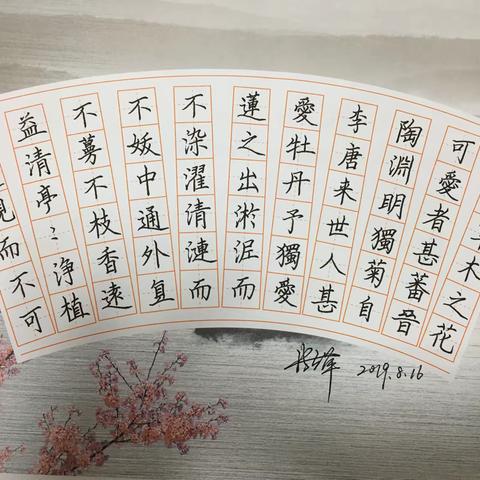 木之花
可愛者甚蕃音
陶淵明獨菊自
李唐来世人甚
愛牡丹予獨愛
蓮之出淤泥而
不染濯清漣而
不妖中通外直
不蔓不枝香遠
益清亭〻浄植
而不可
2019.8.16